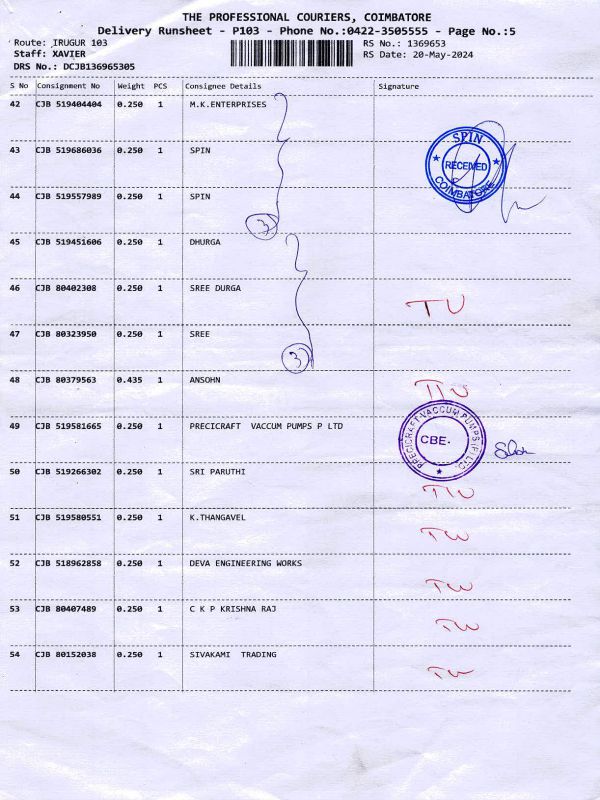 THE PROFESSIONAL COURIERS, COIMBATORE
Delivery Runsheet - P103 - Phone No.:0422-3505555 - Page No.:5
Route: IRUGUR 103
Staff: XAVIER
DRS No.: DCJB136965305
RS No.: 1369653
RS Date: 20-May-2024
S No Consignment No Weight PCS Consignee Details Signature
42 CJB 519404404 0.250 1 M.K.ENTERPRISES
43 CJB 519686036 0.250 1 SPIN
SPIN
RECEIVED
COIMBATORE
44 CJB 519557989 0.250 1 SPIN
3
45 CJB 519451606 0.250 1 DHURGA
46 CJB 80402308 0.250 1 SREE DURGA
47 CJB 80323950 0.250 1 SREE
3
48 CJB 80379563 0.435 1 ANSOHN
49 CJB 519581665 0.250 1 PRECICRAFT VACCUM PUMPS P LTD
PRECICRAFT VACCUM PUMPS (P) LTD.
CBE.
50 CJB 519266302 0.250 1 SRI PARUTHI
51 CJB 519580551 0.250 1 K.THANGAVEL
52 CJB 518962858 0.250 1 DEVA ENGINEERING WORKS
53 CJB 80407489 0.250 1 C K P KRISHNA RAJ
54 CJB 80152038 0.250 1 SIVAKAMI TRADING